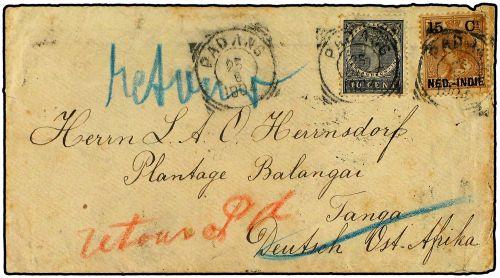 PADANG
PADANG
PADANG
15 Ct
NED.-INDIË
10 CENT
retour
Herrn L A O Herrnsdorf
Plantage Balangai
Tanga
Deutsch Ost-Afrika
retour